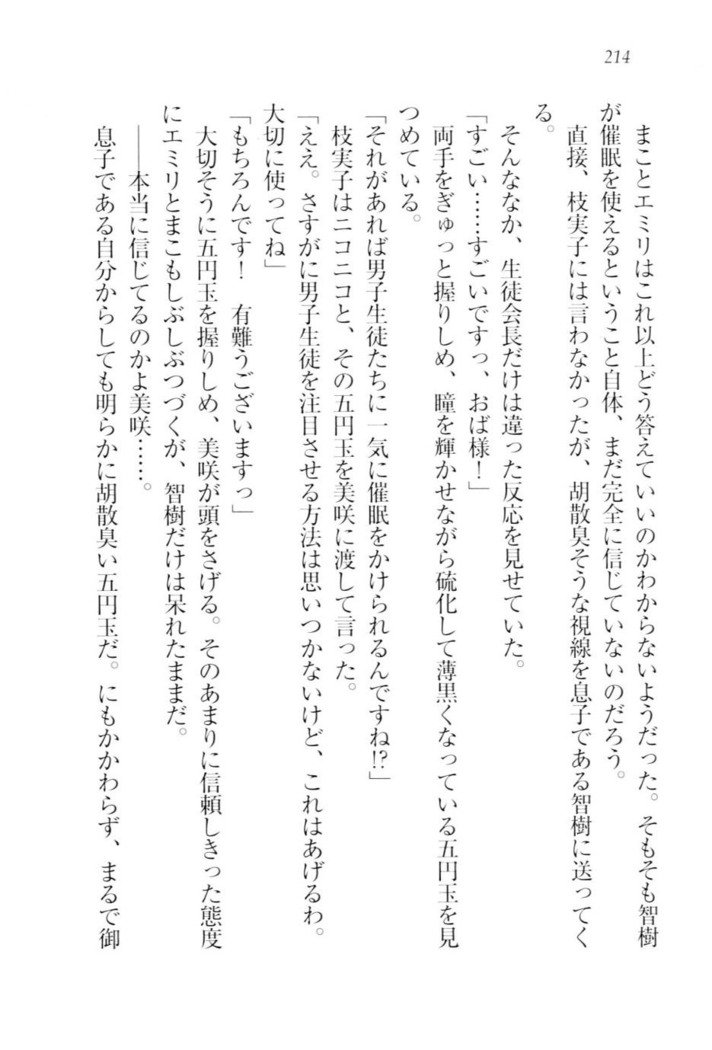 214
まことエミリはこれ以上どう答えていいのかわからないようだった。そもそも智樹
が催眠を使えるということ自体、まだ完全に信じていないのだろう。
直接、枝実子には言わなかったが、胡散臭そうな視線を息子である智樹に送ってく
る。
そんななか、生徒会長だけは違った反応を見せていた。
「すごい……すごいですっ、おば様！」
両手をぎゅっと握りしめ、瞳を輝かせながら硫化して薄黒くなっている五円玉を見
つめている。
「それがあれば男子生徒たちに一気に催眠をかけられるんですね!?」
枝実子はニコニコと、その五円玉を美咲に渡して言った。
「ええ。さすがに男子生徒を注目させる方法は思いつかないけど、これはあげるわ。
大切に使ってね」
「もちろんです！　有難うございますっ」
大切そうに五円玉を握りしめ、美咲が頭をさげる。そのあまりに信頼しきった態度
にエミリとまこもしぶしぶつづくが、智樹だけは呆れたままだ。
――本当に信じてるのかよ美咲……。
息子である自分からしても明らかに胡散臭い五円玉だ。にもかかわらず、まるで御